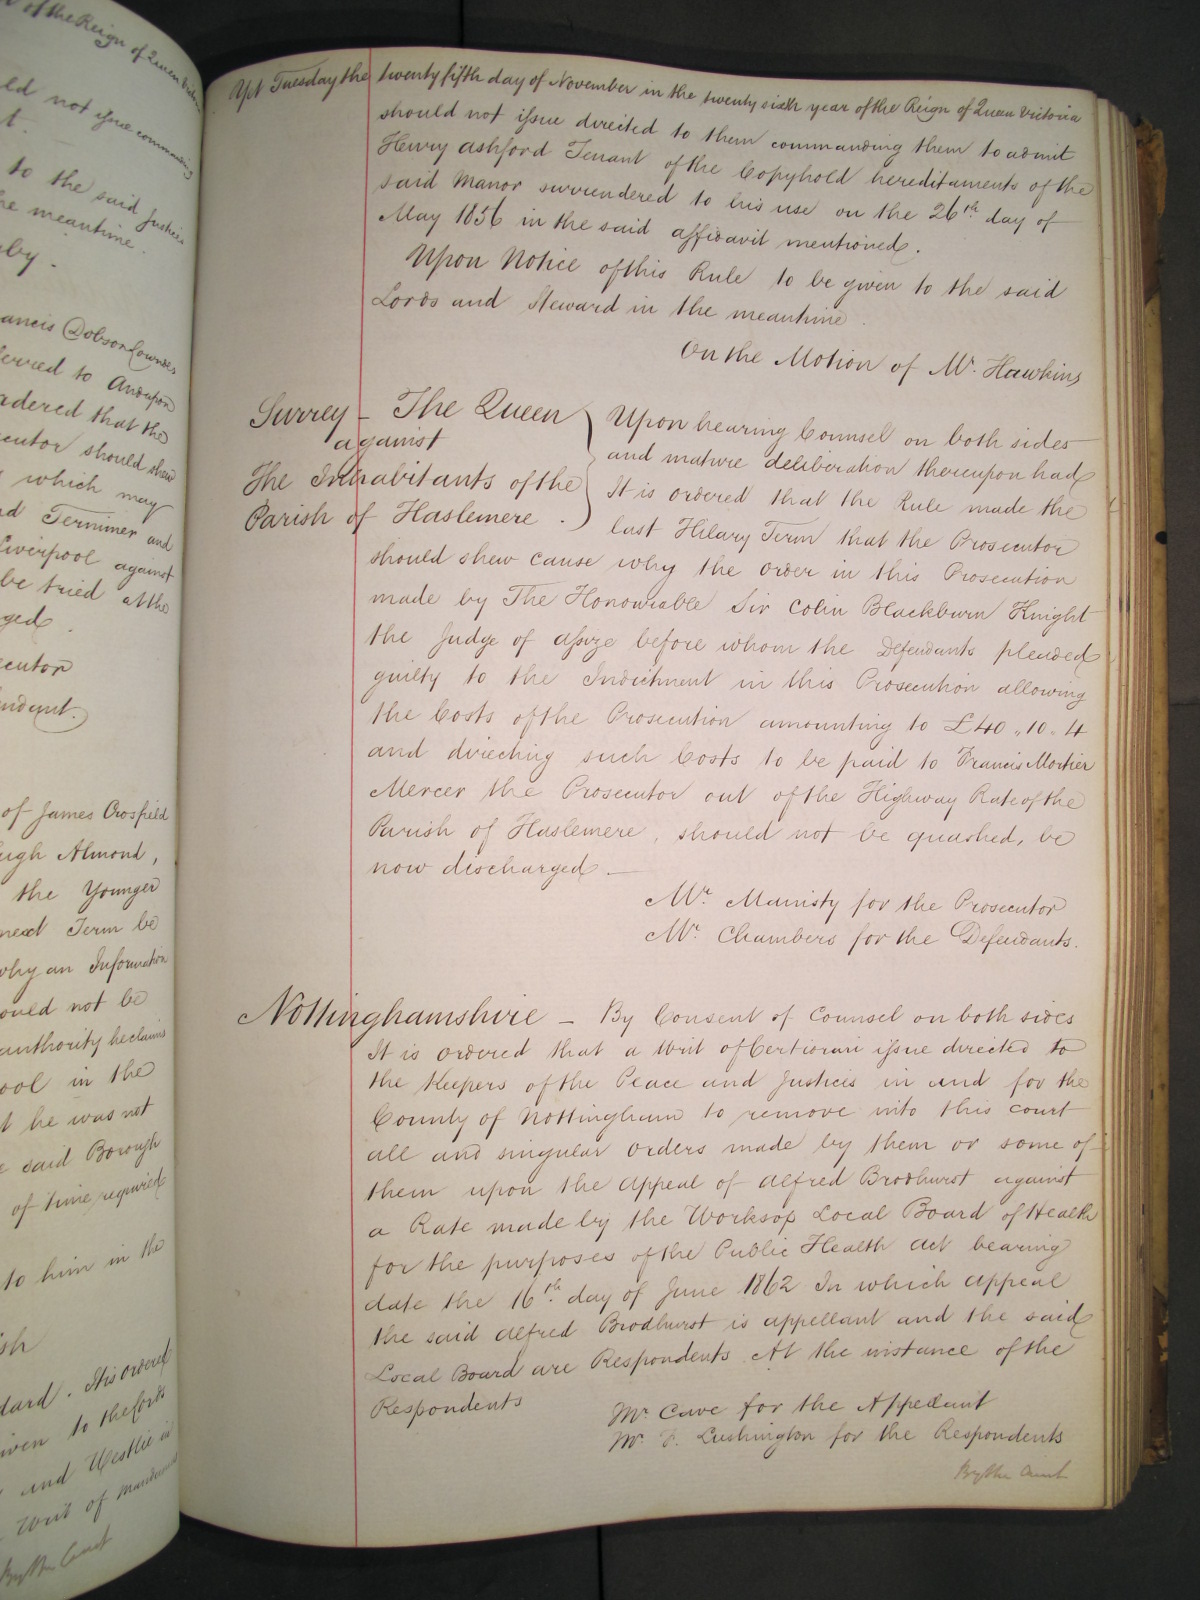 of the Reign of Queen Victoria
ld not issue commanding
t.
to the said Justices
he meantime.
by.
ancis Dobson Lowndes
ferred to And upon
rdered that the
ecutor should shew
which may
nd Terminer and
Liverpool against
be tried at the
ged
ecutor
endant.
of James Crosfield
ugh Almond,
the Younger
next Term be
why an Information
ould not be
authority he claims
ool in the
t he was not
e said Borough
of time required
to him in the
sh
dard. It is ordered
iven to the
and Westlie in
Writ of Mandamus
By the Court
Yet Tuesday the twenty fifth day of November in the twenty sixth year of the Reign of Queen Victoria
should not issue directed to them commanding them to admit
Henry Ashford Tenant of the Copyhold hereditaments of the
said Manor surrendered to his use on the 26th day of
May 1856 in the said affidavit mentioned.
Upon Notice of this Rule to be given to the said
Lords and Steward in the meantime.
On the Motion of Mr. Hawkins
Surrey – The Queen
against
The Inhabitants of the
Parish of Haslemere.
Upon hearing Counsel on both sides
and mature deliberation thereupon had
It is ordered that the Rule made the
last Hilary Term that the Prosecutor
should shew cause why the order in this Prosecution
made by The Honourable Sir Colin Blackburn Knight
the Judge of Assize before whom the Defendants pleaded
guilty to the Indictment in this Prosecution allowing
the Costs of the Prosecution amounting to £40 „ 10 „ 4
and directing such Costs to be paid to Francis Mortier
Mercer the Prosecutor out of the Highway Rate of the
Parish of Haslemere, should not be quashed, be
now discharged —
Mr. Manisty for the Prosecutor
Mr. Chambers for the Defendants.
Nottinghamshire – By Consent of Counsel on both sides
It is ordered that a Writ of Certiorari issue directed to
the Keepers of the Peace and Justices in and for the
County of Nottingham to remove into this court
all and singular orders made by them or some of
them upon the Appeal of Alfred Brodhurst against
a Rate made by the Worksop Local Board of Health
for the purposes of the Public Health Act bearing
date the 16th day of June 1862 In which appeal
the said Alfred Brodhurst is appellant and the said
Local Board are Respondents At the instance of the
Respondents
Mr Cave for the Appellant
Mr. F. Lushington for the Respondents
By the Court